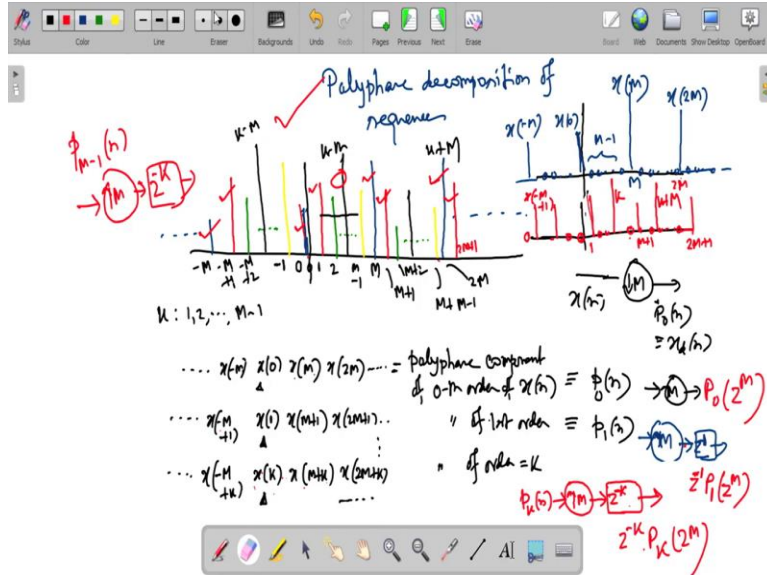 Stylus
Color
Line
Eraser
Backgrounds
Undo
Redo
Pages
Previous
Next
Erase
Board
Web
Documents
Show Desktop
OpenBoard
Polyphase decomposition of
sequences
P_{M-1}(n)
→ ↑M → z^{-K} →
K-M
K+M
x(-M)
x(0)
M-1
x(M)
x(2M)
M
x(-M
+1)
K
K+M
2M
0
1
M+1
2M+1
..... -M
-M
+1
-M
+2
-1
0
1
2
M
-1
M
M+1
M+2
M+M-1
2M
2M+1
K : 1, 2, ..., M-1
x(n)
↓M
P_0(n)
.... x(-M) x(0) x(M) x(2M) .... = polyphase component
of 0-th order of x(n) ≡ p_0(n) → M → P_0(z^M)
.... x(-M
+1) x(1) x(M+1) x(2M+1) ..
" of 1st order ≡ p_1(n)
z^{-1} P_1(z^M)
... x(-M
+K) x(K) x(M+K) x(2M+K)
.....
" of order = K
P_K(n) → ↑M → z^{-K} →
z^{-K} P_K(z^M)